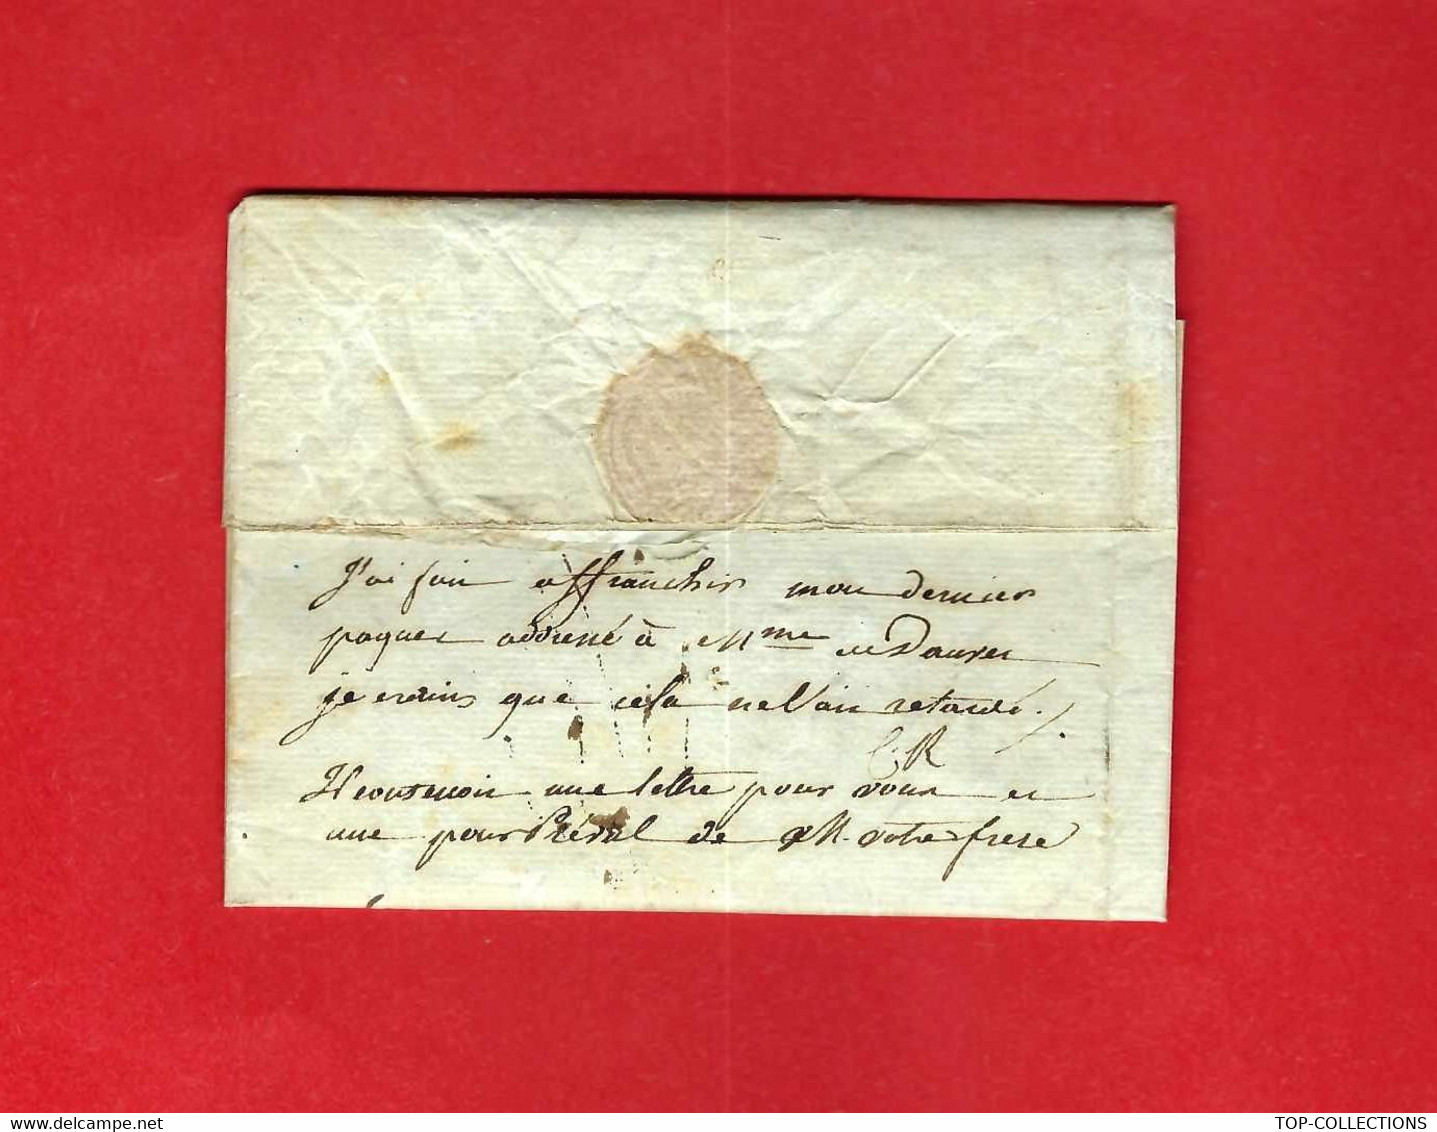 J'ai fait affranchir mon dernier
paquet adressé à Mme de Dauvet
je crains que cela ne l'ait retardé.
C. R
Il contenoit une lettre pour vous et
une pour Préval de M. votre frere
delcampe.net
TOP-COLLECTIONS